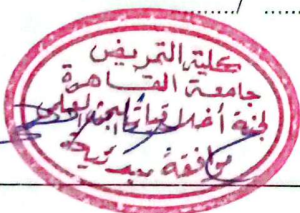 كلية التمريض
جامعة القاهرة
لجنة أخلاقيات البحث العلمي
موافقة مبدئية